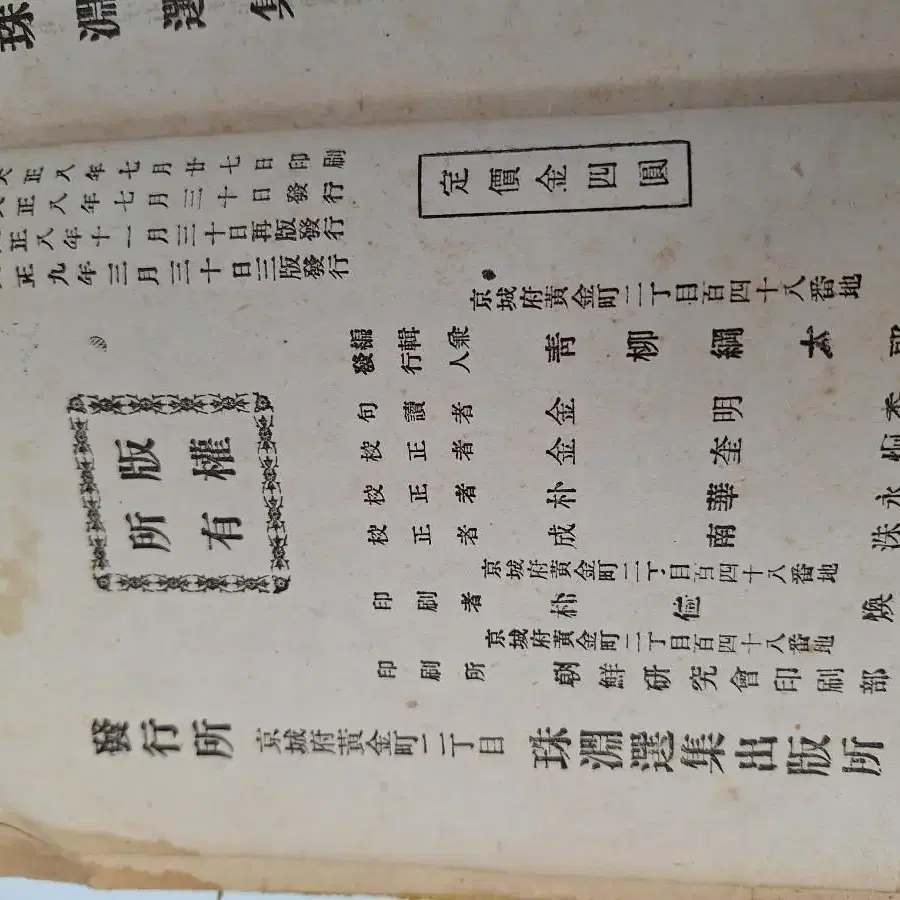 珠淵選集
正八年七月廿七日印刷
正八年七月三十日發行
正八年十一月三十日再版發行
正九年三月三十日三版發行
定價金四圓
京城府黃金町二丁目百四十八番地
編輯兼
發行人 靑柳綱太
版權
所有
句讀者 金明
校正者 金奎
校正者 朴華永
校正者 成南洙
京城府黃金町二丁目百四十八番地
印刷者 朴 煥
京城府黃金町二丁目百四十八番地
印刷所 朝鮮硏究會印刷部
發行所 京城府黃金町二丁目 珠淵選集出版所